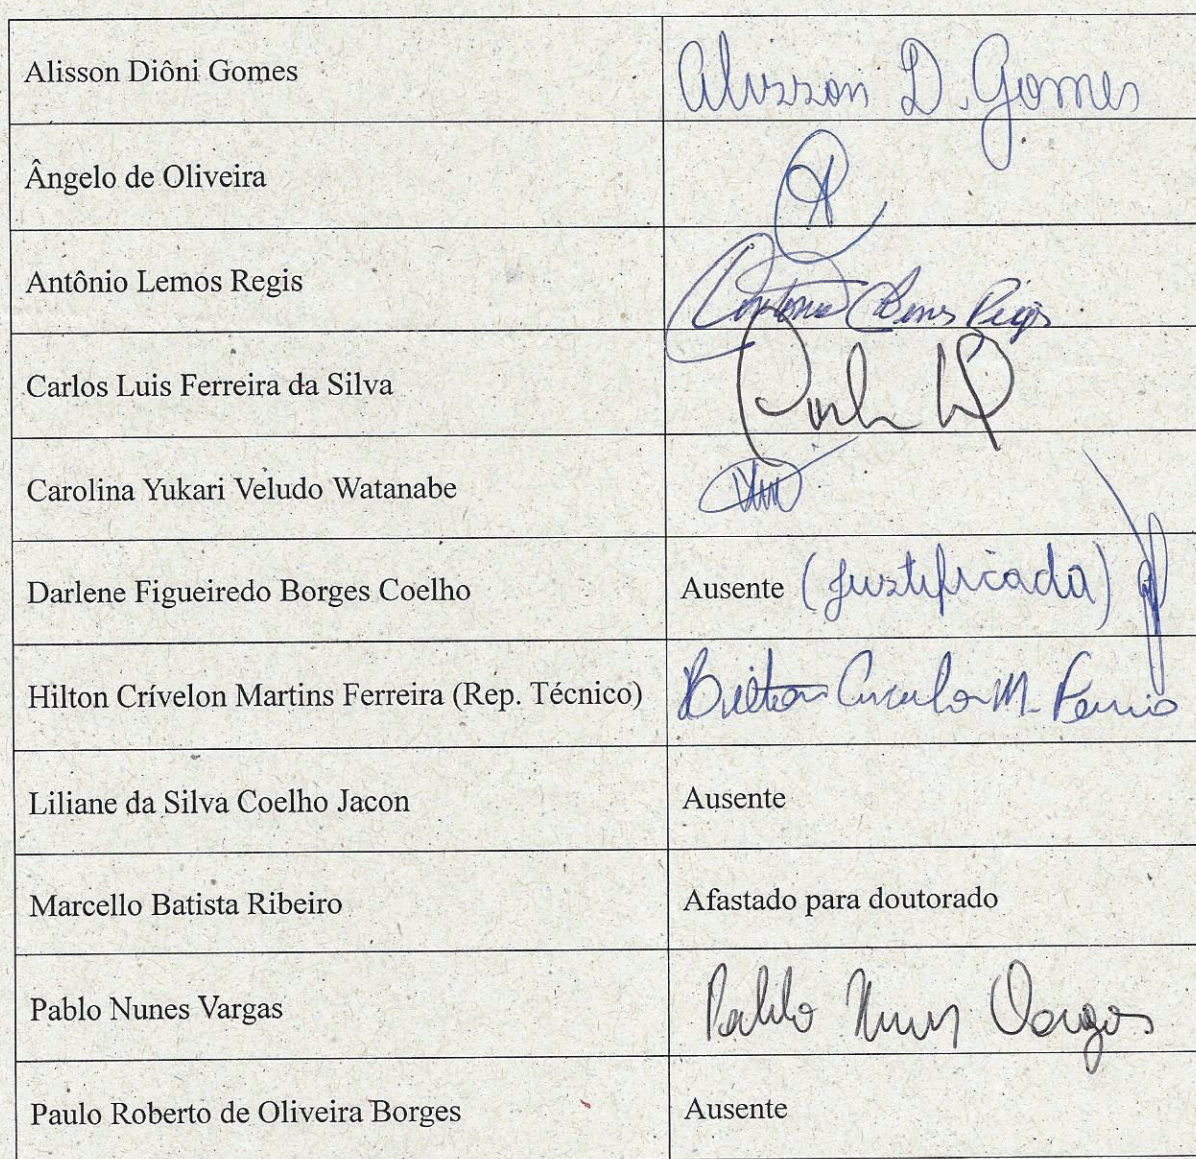 Alisson Diôni Gomes Alisson D. Gomes
Ângelo de Oliveira
Antônio Lemos Regis Antonio Lemos Regis
Carlos Luis Ferreira da Silva
Carolina Yukari Veludo Watanabe
Darlene Figueiredo Borges Coelho Ausente (justificada)
Hilton Crívelon Martins Ferreira (Rep. Técnico)
Liliane da Silva Coelho Jacon Ausente
Marcello Batista Ribeiro Afastado para doutorado
Pablo Nunes Vargas Pablo Nunes Vargas
Paulo Roberto de Oliveira Borges Ausente